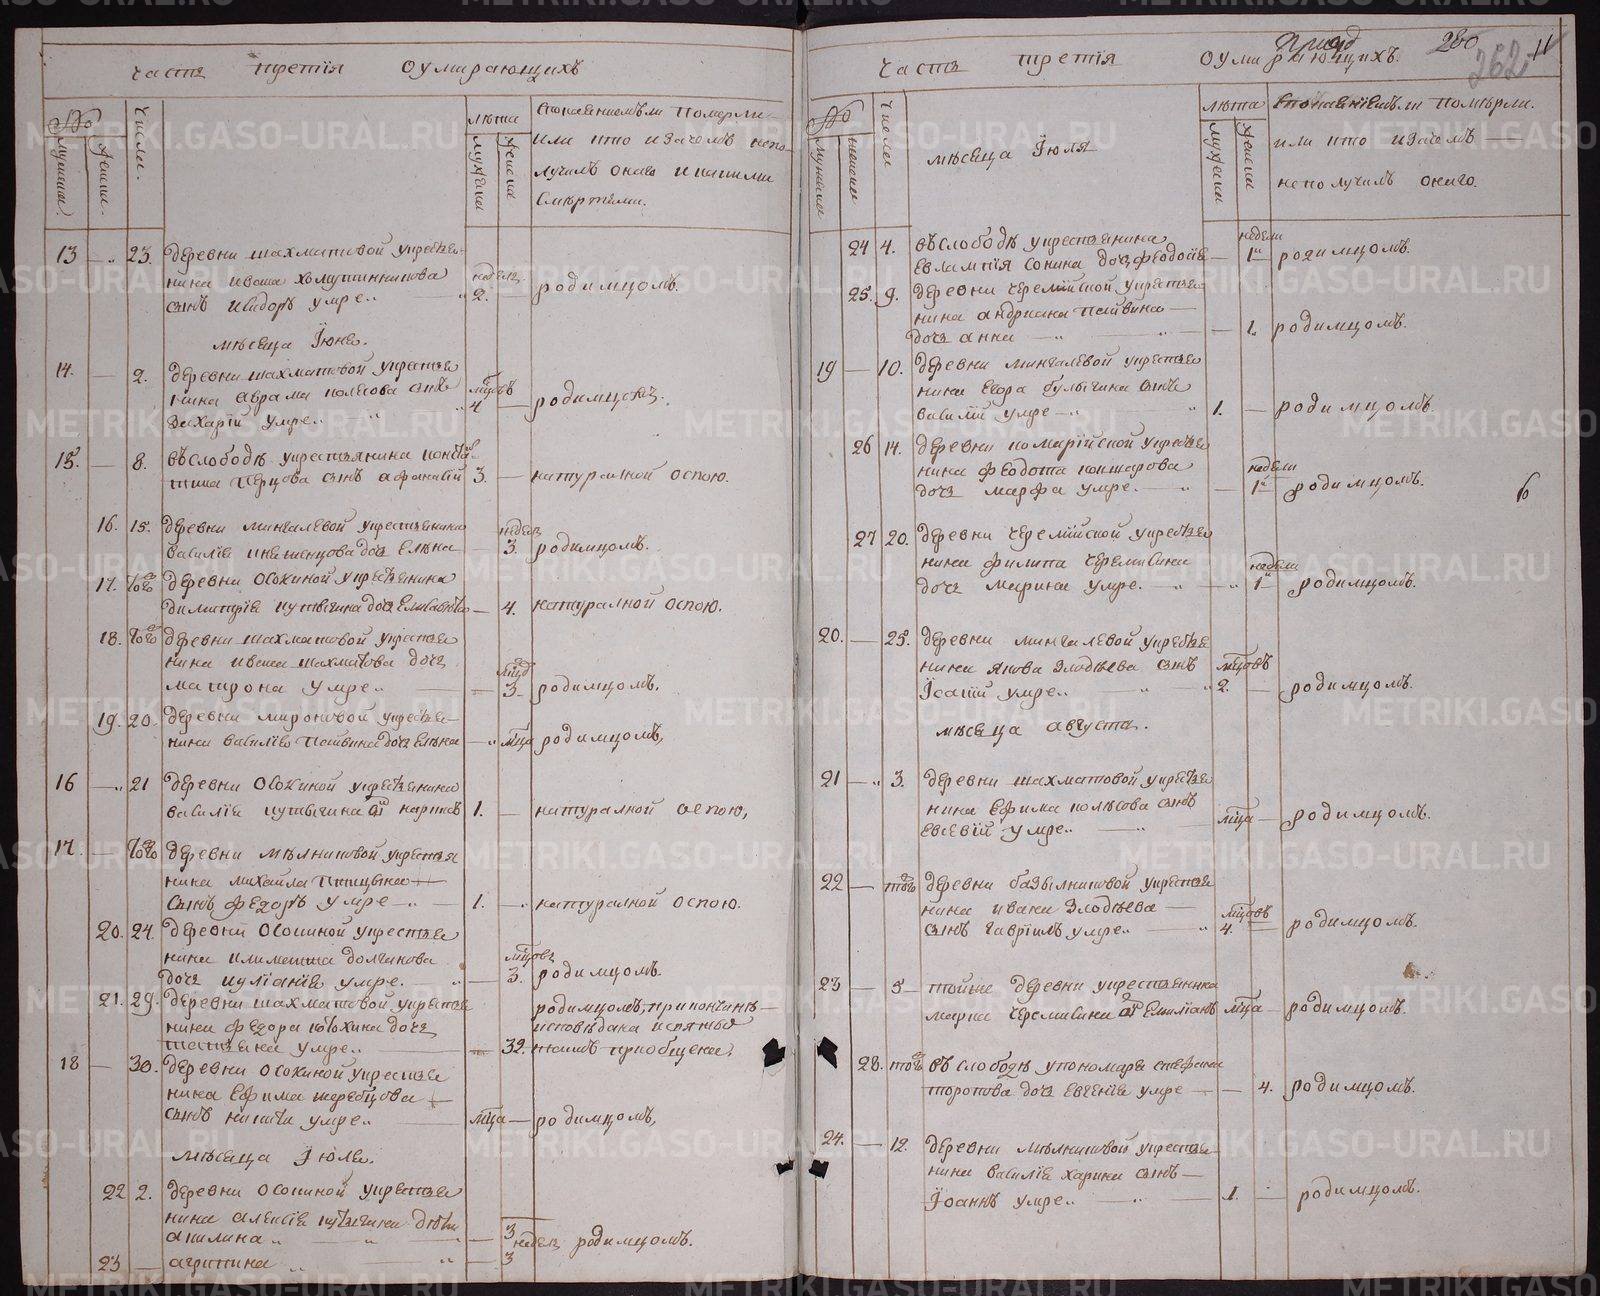 часть третїя оумирающихъ
№ мужескъ женскъ. числа. лѣта мужеска женска
исповѣдиемъ ли померли
или кто и зачемъ непо
лучилъ онаго и какими
смертьми.
13 — 23. деревни шахматовой укрестья
нина ивана
сынъ умре 2. родимцомъ.
мѣсеца Їюнѧ.
14. — 2. деревни шахматовой укрестья
нина аврама колѣсова сынъ
Захарїй умре 4 родимцомъ.
15. — 8. въ слободѣ укрестьянина
сынъ афанасїй 3. — натуралной оспою.
16. 15. деревни мингалевой укрестьянина
василїя доч Елена 3. родимцомъ.
17. того деревни Осокиной укрестьянина
димитрїя доч Елисавета — 4. натуралной оспою.
18. того деревни шахматовой укрестья
нина ивана шахматова доч
матрона умре 3 родимцомъ.
19. 20. деревни мироновой укрестья
нина василїя доч Елена — мца родимцомъ,
16 — 21 деревни Осокиной укрестьянина
василїя карпъ 1. — натуралной оспою,
17. — того деревни мѣлниковой укрестья
нина михаила птицына
сынъ феодоръ умре 1. натуралной оспою.
20. 24. деревни Осокиной укрестья
нина климента долганова
доч иулїанїя умре. 3. родимцомъ.
21. 29. деревни шахматовой укрестья
нина феодора доч
татьяна умре 32.
родимцомъ, при кончинѣ
исповѣдана и святыхъ
таинъ приобщена.
18 — 30. деревни Осокиной укрестья
нина Ефима жеребцова
сынъ никита умре мца — родимцомъ,
мѣсеца Їюлѧ.
22 2. деревни Осокиной укрестья
нина алексїя дѣти
акилина 3 недел родимцомъ.
23 — агрипина 3
часть третїя оумирающихъ. 260 262 11
№ мужескъ женскъ числа лѣта мужеска женска
мѣсеца Їюля
исповѣдиемъ ли помѣрли.
или кто и зачемъ
не получилъ онаго.
24 4. въ слободѣ укрестьянина
Евлампїя Сонина доч феодосїя — недели 1 родимцомъ.
25. 9. деревни черемїйской укрестья
нина андриана
доч анна — 1. родимцомъ.
19 — 10. деревни мингалевой укрестья
нина Егора булыгина сынъ
василїй умре 1. — родимцомъ.
26 14. деревни комарїйской укрестья
нина феодота кокшарова
доч марфа умре. — недели 1 родимцомъ.
27 20. деревни черемїйской укрестья
нина филипа черемисина
доч марина умре. недели 1 родимцомъ.
20. — 25. деревни мингалевой укрестья
нина якова Злодѣева сынъ
Їоакїй умре 2. — родимцомъ.
мѣсеца августа.
21 — 3. деревни шахматовой укрестья
нина Ефима колѣсова сынъ
Евсевїй умре мца — родимцомъ.
22 — того деревни базылниковой укрестья
нина ивана Злодѣева
сынъ гаврїилъ умре 4. — родимцомъ.
23 — 5 — тойже деревни укрестьянина
марка черемисина Емилїанъ мца — родимцомъ.
28. того въ слободѣ у пономаря стефана
торопова доч Евгенїя умре — 4. родимцомъ.
24. — 12. деревни мѣлниковой укрестья
нина василїя харина сынъ
Їоаннъ умре 1. родимцомъ.